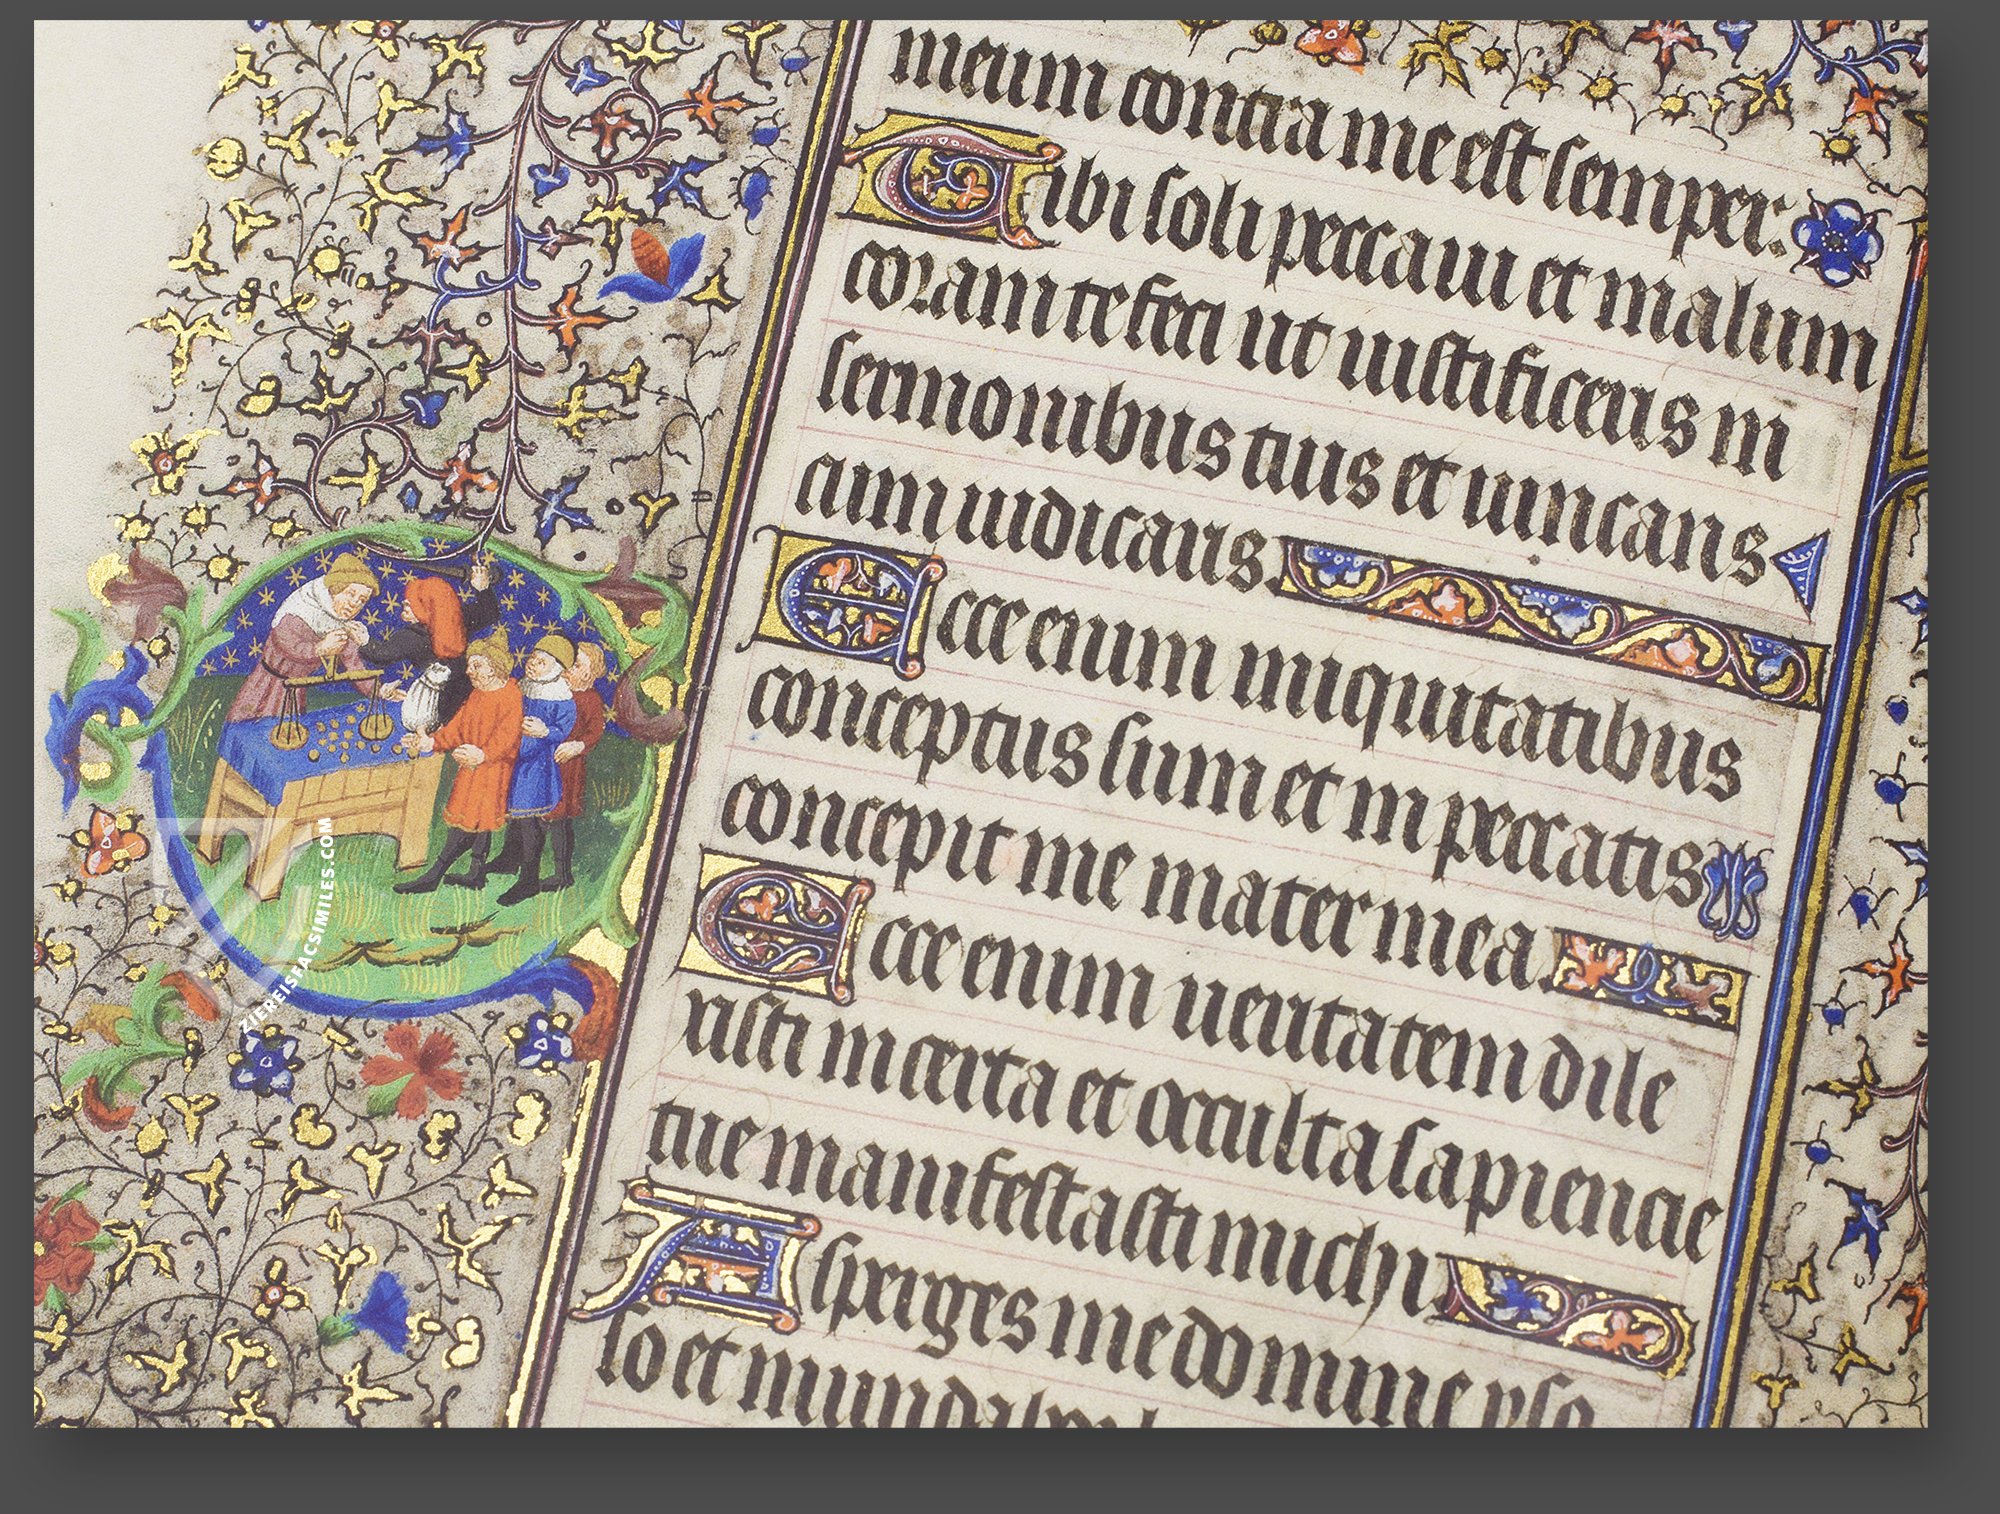 meum contra me est semper:
Tibi soli peccaui et malum
coram te feci ut iustificeris in
sermonibus tuis et uincas
cum iudicaris
Ecce enim iniquitatibus
conceptus sum et in peccatis
concepit me mater mea
Ecce enim ueritatem dile
xisti incerta et occulta sapiencie
tue manifestasti michi
Asperges me domine yso
po et mundabor
ZIEREISFACSIMILES.COM